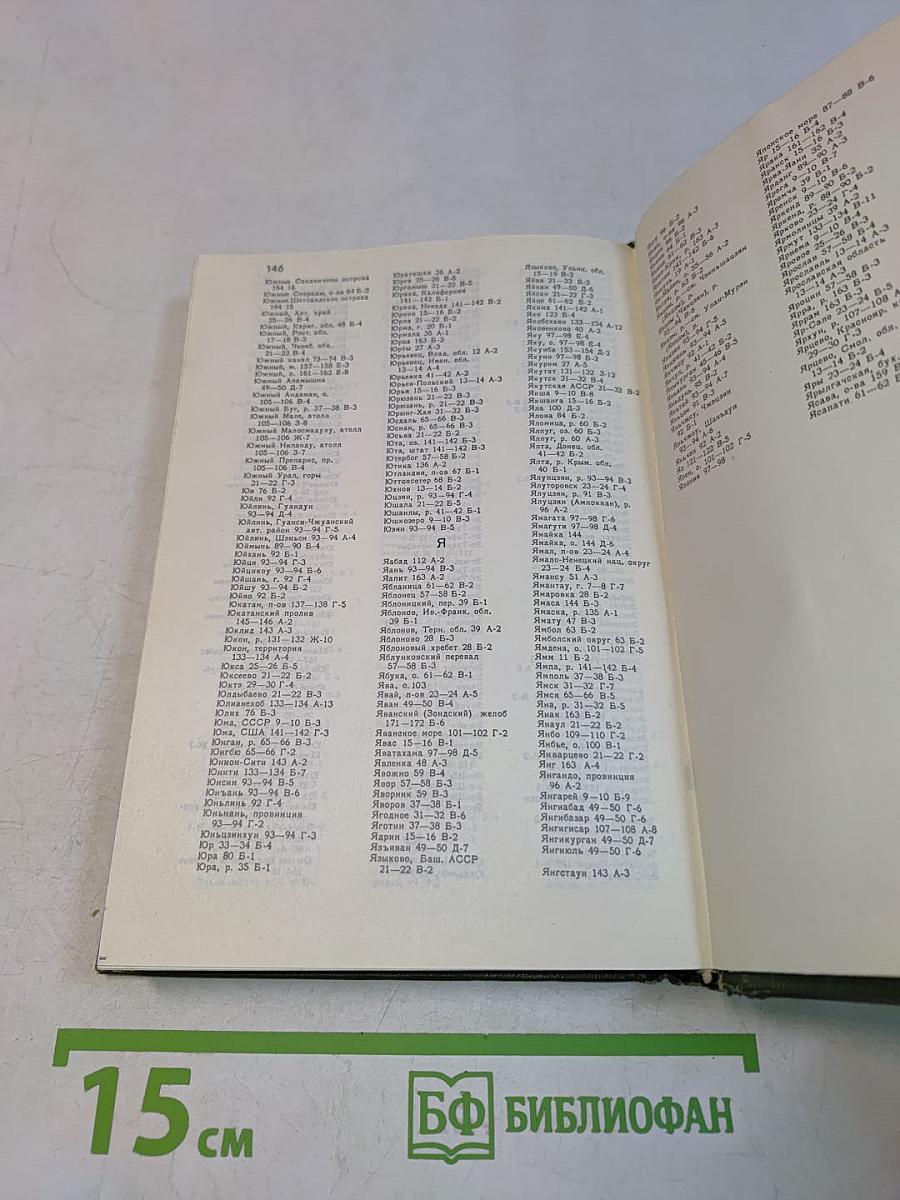 146
Южные Сандвичевы острова
164 15
Южные Спорады, о-ва 64 Б-2
Южные Шетландские острова
164 15
Южный, Алт. край
25—26 В-4
Южный, Караг. обл. 48 Б-4
Южный, Рост. обл.
17—18 В-2
Южный, Челяб. обл.
21—22 В-4
Южный канал 73—74 В-3
Южный, м. 157—158 Е-3
Южный, о. 161—162 Е-8
Южный Аламышик
49—50 Д-7
Южный Андаман, о.
105—106 В-4
Южный Буг, р. 37—38 В-3
Южный Мале, атолл
105—106 З-8
Южный Малосмадулу, атолл
105—106 Ж-7
Южный Ниланду, атолл
105—106 З-7
Южный Препарис, пр.
105—106 В-4
Южный Урал, горы
21—22 Г-3
Юв 76 Б-2
Юйли 92 Г-4
Юйлинь, Гуандун
93—94 Д-4
Юйлинь, Гуанси-Чжуанский
авт. район 93—94 Г-5
Юйлинь, Шэньси 93—94 А-4
Юймынь 89—90 Б-4
Юйхань 92 Б-1
Юйци 93—94 Г-3
Юйцикоу 93—94 Б-6
Юйшань, г. 92 Г-4
Юйшу 93—94 Б-2
Юйяо 92 Б-2
Юкатан, п-ов 137—138 Г-5
Юкатанский пролив
145—146 А-2
Юклид 143 А-3
Юкон, р. 131—132 Ж-10
Юкон, территория
133—134 А-4
Юкса 25—26 Б-5
Юксеево 21—22 Б-2
Юктэ 29—30 Г-4
Юлдыбаево 21—22 В-3
Юлианехоб 133—134 А-13
Юлих 76 Б-3
Юма, СССР 9—10 Б-3
Юма, США 141—142 Г-3
Юнган, р. 65—66 В-3
Юнгбю 65—66 Г-2
Юнион-Сити 143 А-2
Юнити 133—134 Б-7
Юнсин 93—94 В-5
Юнъань 93—94 В-6
Юньлинь 92 Г-4
Юньнань, провинция
93—94 Г-2
Юньцзинхун 93—94 Г-3
Юр 33—34 Б-4
Юра 80 Б-1
Юра, р. 35 Б-1
Юратишки 36 А-2
Юрга 25—26 В-6
Юрганыш 21—22 В-5
Юрика, Калифорния
141—142 Б-1
Юрика, Невада 141—142 В-2
Юркино 15—16 Б-2
Юрла 21—22 Б-2
Юрма, г. 20 Б-1
Юрмала 35 А-1
Юров 163 Б-3
Юрты 27 А-3
Юрьевец, Влад. обл. 12 А-2
Юрьевец, Иван. обл.
13—14 А-4
Юрьевка 41—42 А-2
Юрьев-Польский 13—14 А-3
Юрья 15—16 Б-3
Юрюзань 21—22 В-3
Юрюзань, р. 21—22 В-3
Юрюнг-Хая 31—32 Б-3
Юсдаль 65—66 В-3
Юснан, р. 65—66 В-3
Юсьва 21—22 Б-2
Юта, оз. 141—142 Б-3
Юта, штат 141—142 В-3
Ютербог 57—58 Б-2
Ютика 136 А-2
Ютландия, п-ов 67 Б-1
Юттоксетер 68 Б-2
Юхнов 13—14 Б-2
Юцзян, р. 93—94 Г-4
Юшала 21—22 Б-5
Юшанлы, р. 41—42 Б-1
Юшкозеро 9—10 В-3
Юэян 93—94 В-5
Я
Яабад 112 А-2
Яань 93—94 В-3
Яапит 163 А-2
Ябланица 61—62 В-2
Яблонец 57—58 Б-2
Яблоницкий, пер. 39 Б-1
Яблонов, Ив.-Франк. обл.
39 Б-1
Яблонов, Терн. обл. 39 А-2
Яблоново 28 Б-3
Яблоновый хребет 28 Б-2
Яблунковский перевал
57—58 Б-3
Ябука, о. 61—62 В-1
Ява, о. 103
Явай, п-ов 23—24 А-5
Яван 49—50 В-4
Яванский (Зондский) желоб
171—172 Б-6
Яванское море 101—102 Г-2
Явас 15—16 В-1
Яватахама 97—98 Д-5
Явленка 48 А-3
Явожно 59 В-4
Явор 57—58 Б-3
Яворник 59 В-3
Яворов 37—38 Б-1
Ягодное 31—32 В-6
Яготин 37—38 Б-3
Ядрин 15—16 В-2
Язъяван 49—50 Д-7
Языково, Баш. АССР
21—22 В-2
Языково, Ульян. обл.
15—16 В-2
Яйва 21—22 Б-3
Яйпан 49—50 Д-6
Яйсан 21—22 Г-3
Яйце 61—62 Б-2
Якима 141—142 А-1
Яко 123 Б-4
Якобсхавн 133—134 А-12
Яковенково 40 А-2
Яку 97—98 Е-4
Яку, о. 97—98 Е-4
Якумба 153—154 Д-3
Якуно 97—98 Б-2
Якурим 27 А-5
Якутат 131—132 З-12
Якутск 31—32 В-4
Якутская АССР 31—32 В-2
Якша 9—10 В-8
Якшанга 15—16 Б-2
Яла 100 Д-3
Ялова 84 Б-2
Яломица, р. 60 Б-2
Ялпуг, оз. 60 Б-3
Ялпуг, р. 60 А-3
Ялта, Донец. обл.
41—42 Б-2
Ялта, р. Крым. обл.
40 Б-1
Ялунцзян, р. 93—94 В-3
Ялуторовск 23—24 Г-4
Ялуцзян, р. 91 В-3
Ялуцзян (Амноккан), р.
96 А-2
Ямагата 97—98 Г-6
Ямагути 97—98 Д-4
Ямайка 144
Ямайка, о. 144 Д-6
Ямал, п-ов 23—24 А-4
Ямало-Ненецкий нац. округ
23—24 Б-4
Ямансу 51 А-3
Ямантау, г. 7—8 Г-7
Ямаровка 28 Б-2
Ямаса 144 Б-3
Ямаска, р. 135 А-1
Ямату 47 В-3
Ямбол 63 Б-2
Ямболский округ 63 Б-2
Ямдена, о. 101—102 Г-5
Ямм 11 Б-2
Ямпа, р. 141—142 Б-4
Ямполь 37—38 Б-3
Ямск 31—32 Г-7
Ямся 65—66 В-5
Яна, р. 31—32 Б-5
Янак 163 Б-2
Янаул 21—22 Б-2
Янбо 109—110 Г-2
Янбье, о. 100 В-1
Январцево 21—22 Г-2
Янг 163 А-4
Янгандо, провинция
96 А-2
Янгарей 9—10 Б-9
Янгиабад 49—50 Г-6
Янгибазар 49—50 Г-6
Янгигисар 107—108 А-8
Янгикурган 49—50 Д-7
Янгиюль 49—50 Г-6
Янгстаун 143 А-3
Японское море 87—88 В-6
Яр 15—16 Б-4
Ярака 161—162 В-4
Яранск 15—16 Б-3
Ярва-Яани 35 А-2
Ярданг 89—90 А-3
Ярега 9—10 В-7
Яремча 39 Б-1
Яренск 9—10 В-6
Яркенд 89—90 Б-2
Яркенд, р. 88—90 Б-2
Ярково 23—24 Г-4
Ярмолинцы 39 А-2
Ярмут 133—134 В-11
Ярнема 9—10 В-4
Яровое 25—26 В-3
Ярослав 57—58 Б-4
Ярославль 13—14 А-3
Ярославская область
13—14 А-3
Яроцин 57—58 Б-3
Ярцево, Краснояр. к
29—30 Г-1
Ярцево, Смол. обл.
13—14 Б-2
Яры 23—24 Б-4
Ярылгачская, бух.
Ясава, о-ва 159 В
Ясапати 61—62 Б
15 см
БФ БИБЛИОФАН